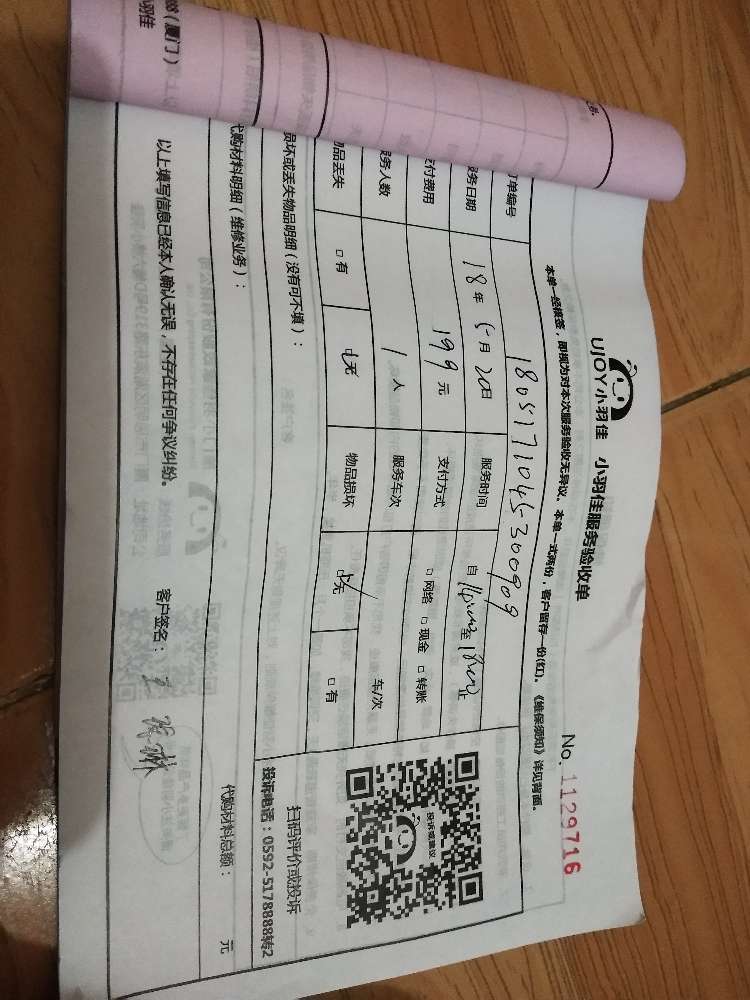 UJOY小羽佳 小羽佳服务验收单
No. 1129716
本单一经核签,即视为对本次服务验收无异议。本单一式两份,客户留存一份(红)。《维保须知》详见背面。
订单编号 1805171045300909
服务日期 18年5月20日 服务时间 自 至 止
支付费用 199元 支付方式 □网络 □现金 □转账
服务人数 1人 服务车次 车/次
物品丢失 □有 □无 物品损坏 □无 □有
损坏或丢失物品明细(没有可不填):
投诉或建议
扫码评价或投诉
投诉电话:0592-5178888转2
代购材料明细(维修业务): 代购材料总额: 元
以上填写信息已经本人确认无误,不存在任何争议纠纷。 客户签名:
(厦门)
羽佳